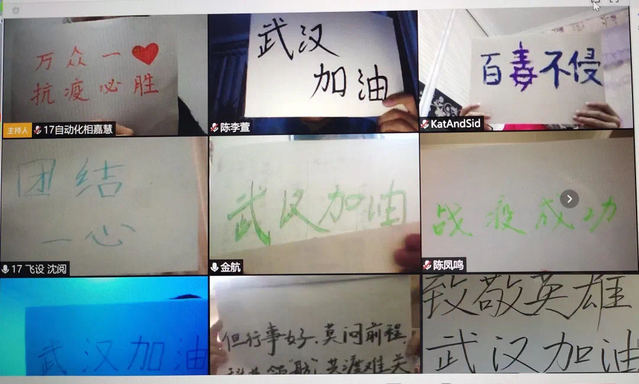 万众一❤
抗疫必胜
主持人 17自动化相嘉慧
武汉
加油
陈李萱
百毒不侵
KatAndSid
团结
一心
17 飞设 沈阅
武汉加油
金航
战疫成功
陈凤鸣
武汉加油
但行事好.莫问前程
共渡难关
致敬英雄
武汉加油